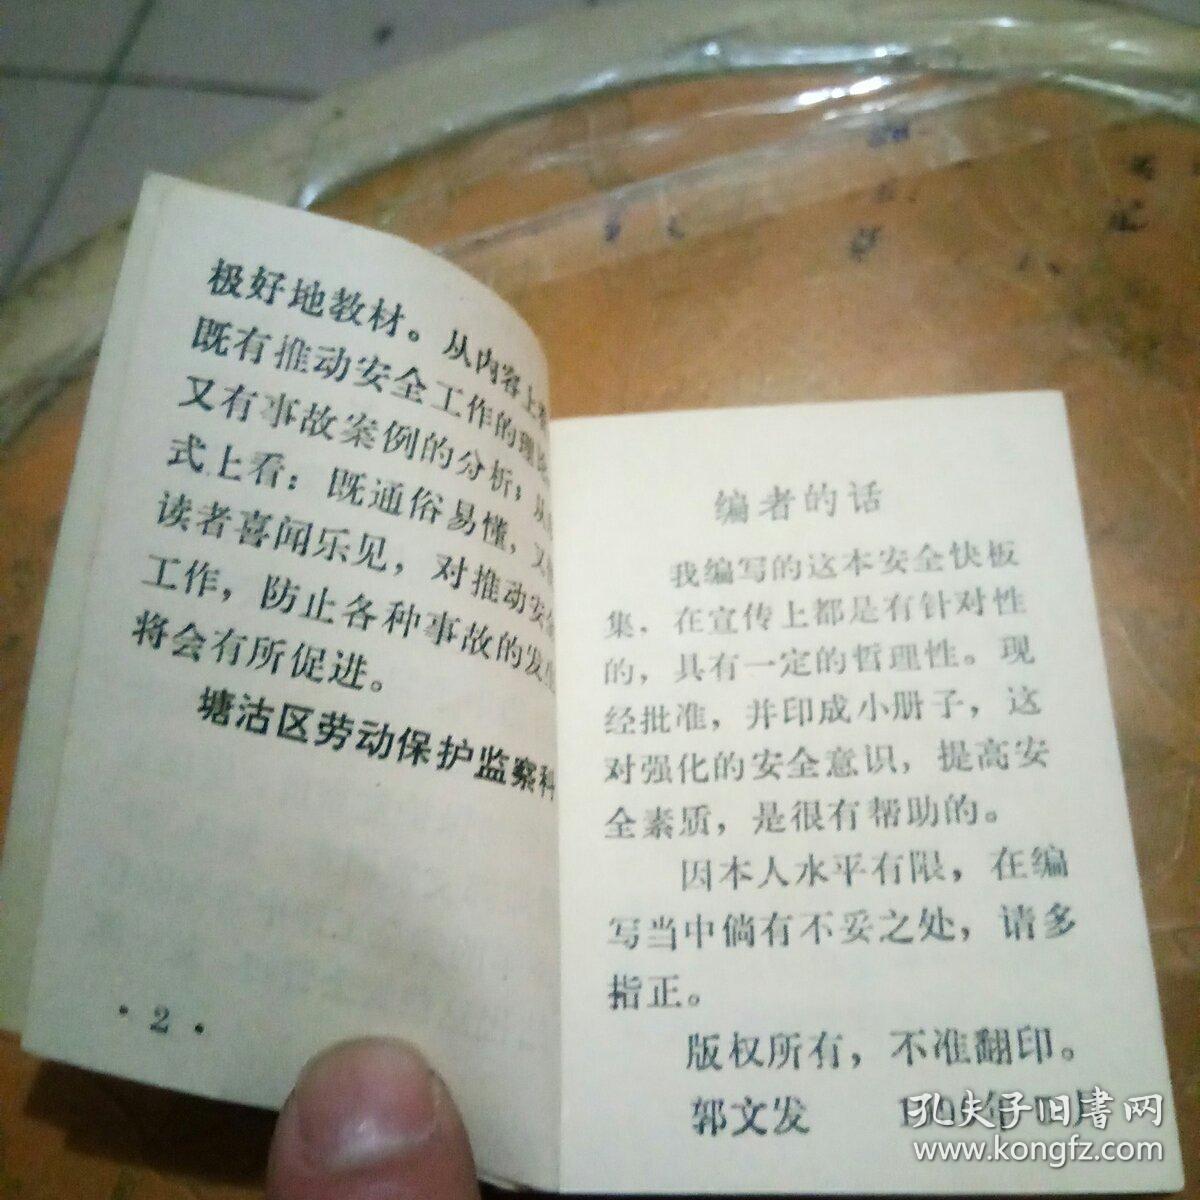 极好地教材。从内容上看
既有推动安全工作的理
又有事故案例的分析；从
式上看：既通俗易懂，又
读者喜闻乐见，对推动安全
工作，防止各种事故的发生
将会有所促进。
塘沽区劳动保护监察科
·2·
编者的话
我编写的这本安全快板
集．在宣传上都是有针对性
的，具有一定的哲理性。现
经批准，并印成小册子，这
对强化的安全意识，提高安
全素质，是很有帮助的。
因本人水平有限，在编
写当中倘有不妥之处，请多
指正。
版权所有，不准翻印。
郭文发
孔夫子旧书网
www.kongfz.com